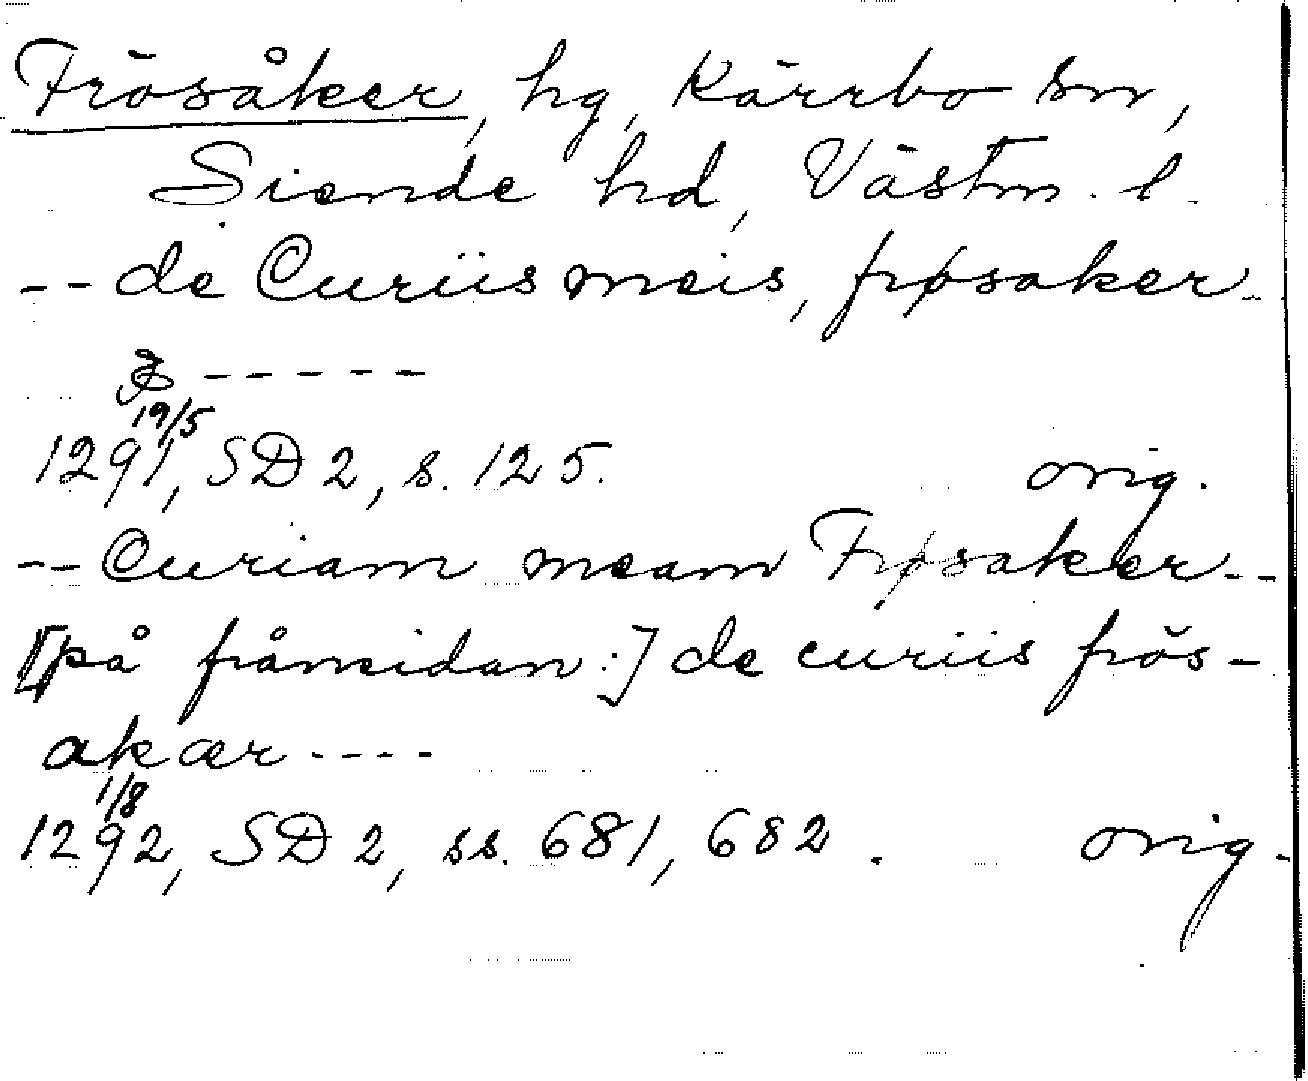 Frösåker, hg, Kärrbo sn,
Siende hd, Västm. l.
-- de Curiis meis, frøsaker --
& -----
19/5
1291, SD 2, s. 125. orig.
-- Curiam meam Frøsaker --
[på framsidan:] de curiis frös-
akær ----
1/8
1292, SD 2, ss. 681, 682. orig.